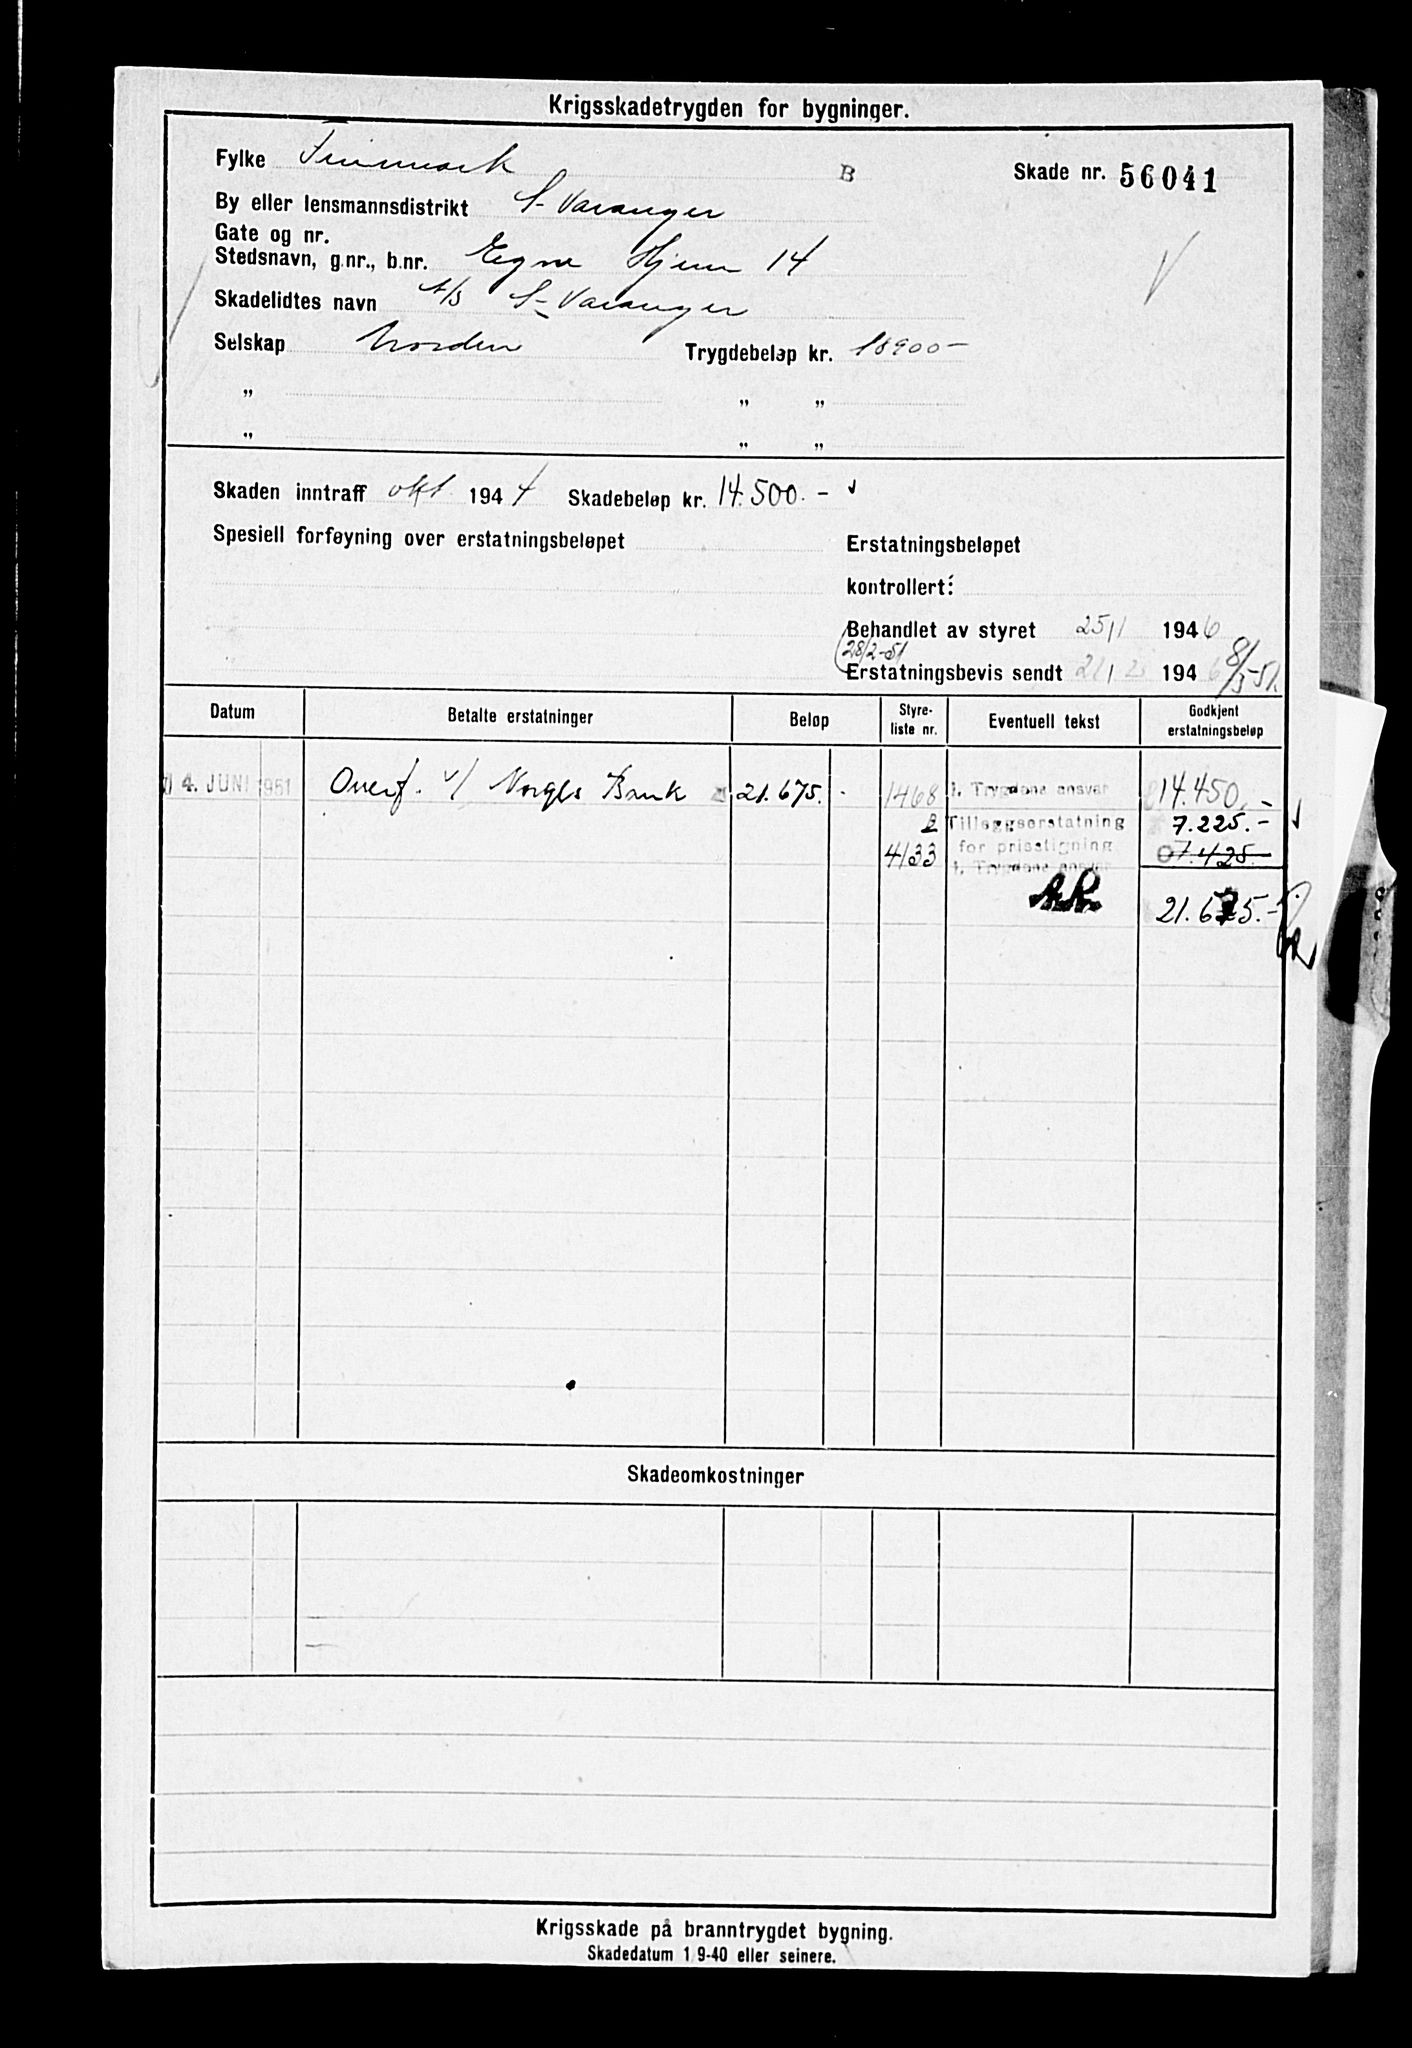 Krigsskadetrygden for bygninger.
Fylke Finnmark B Skade nr. 56041
By eller lensmannsdistrikt S-Varanger
Gate og nr.
Stedsnavn, g.nr., b.nr. Egne Hjem 14
Skadelidtes navn A/S S-Varanger
Selskap Norden Trygdebeløp kr. 18900-
„ „ „
„ „ „
Skaden inntraff okt. 1944 Skadebeløp kr. 14.500.-
Spesiell forføyning over erstatningsbeløpet Erstatningsbeløpet
kontrollert:
Behandlet av styret 25/1 1946
28/2-51
Erstatningsbevis sendt 1946 8/3-51.
Datum Betalte erstatninger Beløp Styre-liste nr. Eventuell tekst Godkjent erstatningsbeløp
4. JUNI 1951 Overf. v/ Norges Bank 21.675.- 1468 i. Trygdens ansvar 14.450.-
B Tilleggserstatning 7.225.-
4133 for prisstigning 7.425.-
i. Trygdens ansvar
21.675.-
Skadeomkostninger
Krigsskade på branntrygdet bygning.
Skadedatum 1 9-40 eller seinere.